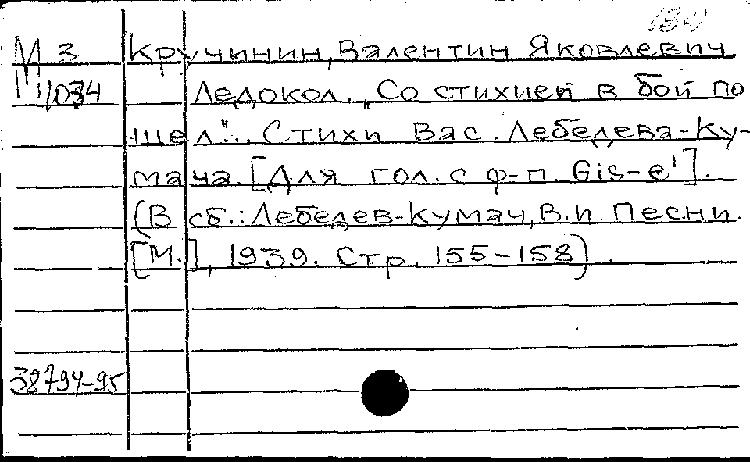 М 3
1034
Кручинин, Валентин Яковлевич
Ледокол. „Со стихией в бой по
шел". Стихи Вас. Лебедева-Ку-
мача. [Для гол. с ф-п. Gis-e¹].
(В сб.: Лебедев-Кумач, В.И Песни.
[М.], 1939. Стр. 155-158).
38794-95